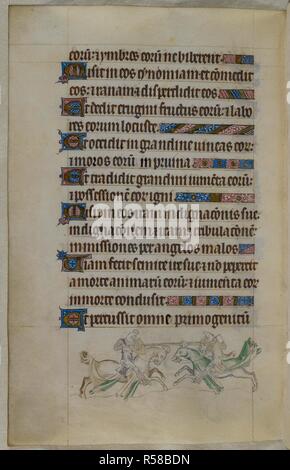 coru: ⁊ ymbres coru ne biberent.
Misit in eos cynomiam et comedit
eos: ⁊ ranam ⁊ disperdidit eos
Et dedit erugini fructus coru: ⁊ labo
res eorum locuste.
Et occidit in grandine uineas eor:
⁊ moros coru in pruina
Et tradidit grandini iumenta coru:
⁊ possessionem eor igni
Misit in eos iram indignacionis sue:
indignacionem ⁊ iram ⁊ tribulacionem
inmissiones per angelos malos
Uiam fecit semite ire sue ⁊ no pepercit
a morte animaru coru: ⁊ iumenta eor
in morte conclusit
Et percussit omne primogenitu
alamy
Image ID: R58BDN
www.alamy.com